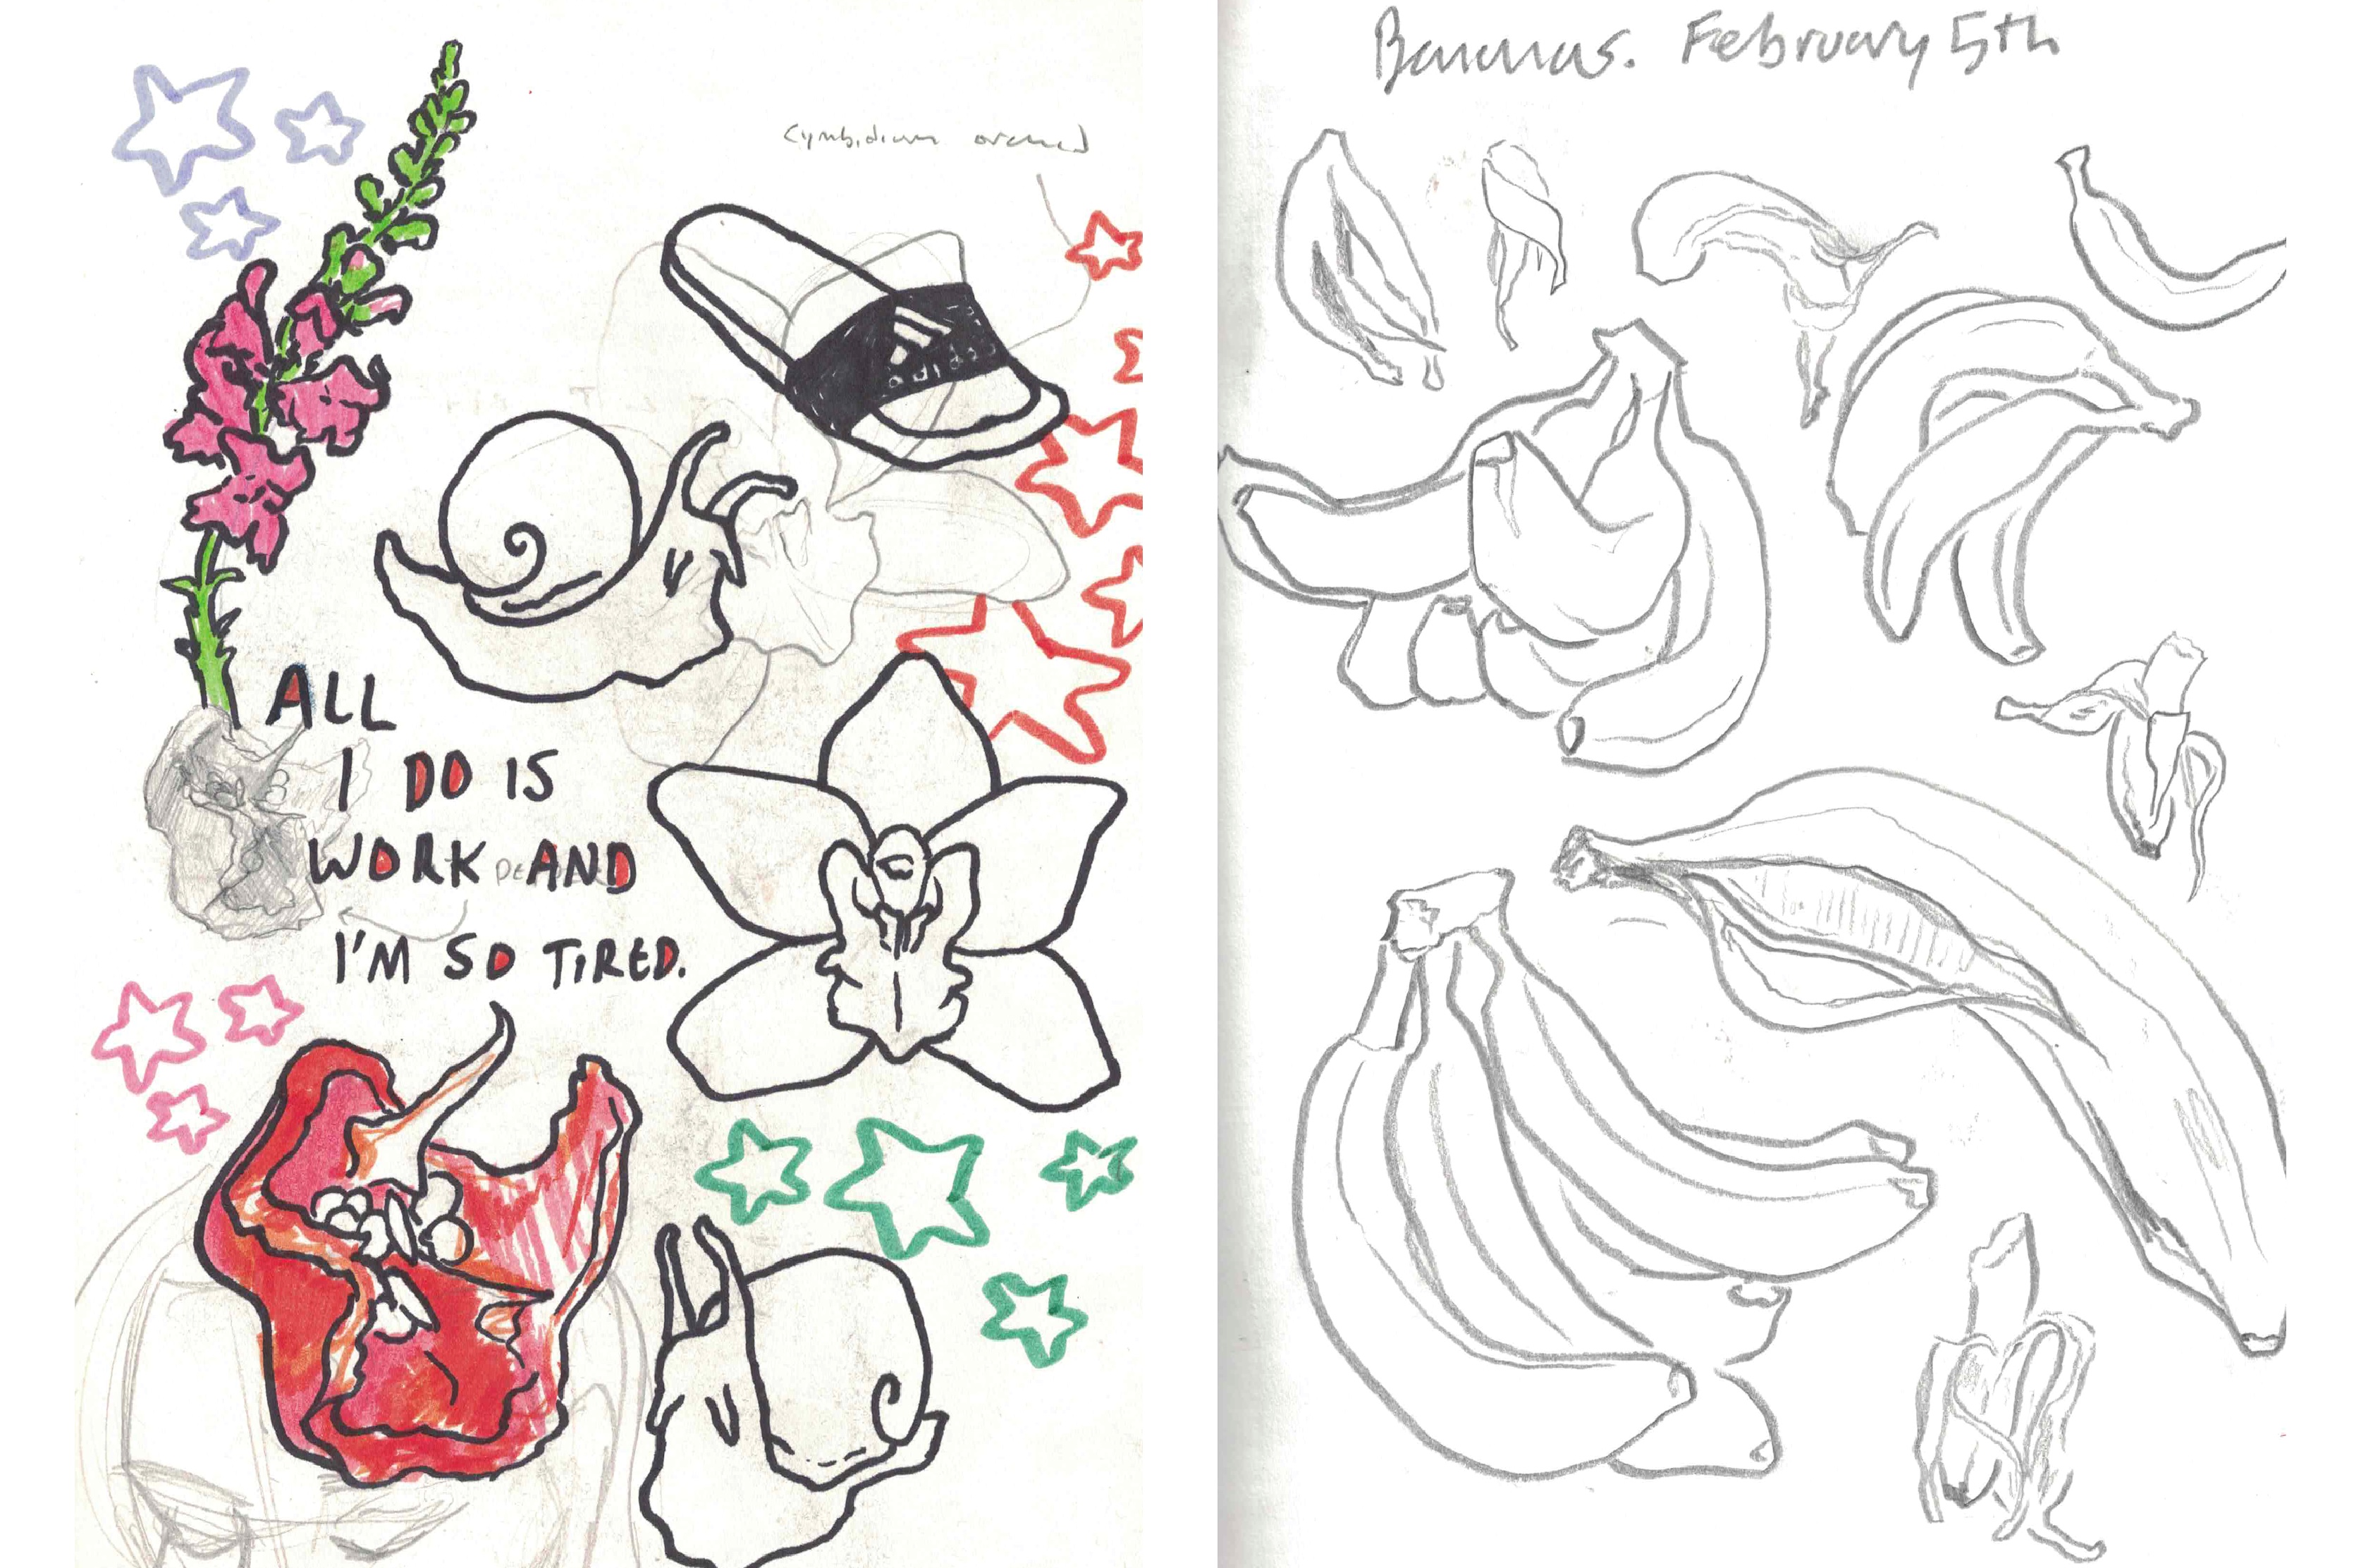 Cymbidium orchid
adidas
ALL
I DO IS
WORK AND
I'M SO TIRED.
Bananas. February 5th